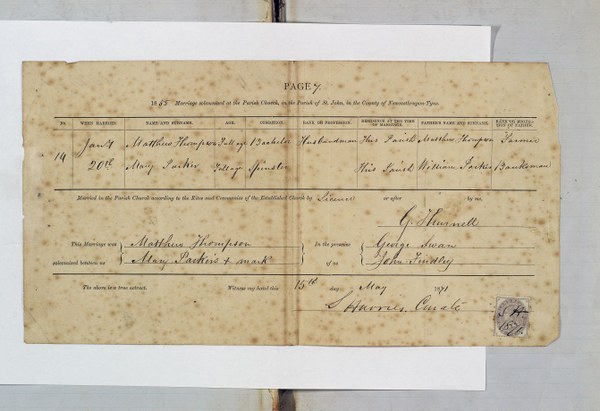 PAGE 7.
1865 Marriage solemnized at the Parish Church, in the Parish of St. John, in the County of Newcastle-upon-Tyne.
No. WHEN MARRIED. NAME AND SURNAME. AGE. CONDITION. RANK OR PROFESSION. RESIDENCE AT THE TIME OF MARRIAGE. FATHER'S NAME AND SURNAME. RANK OR PROFESSION OF FATHER.
14 Jany Matthew Thompson Full age Bachelor Husbandman This Parish Matthew Thompson Farmer
20th Mary Parker Full age Spinster This Parish William Parker Banksman
Married in the Parish Church according to the Rites and Ceremonies of the Established Church by Licence or after by me,
This Marriage was Matthew Thompson In the presence George Swan
solemnized between us Mary Parker's + mark of us John Findley
The above is a true extract. Witness my hand this 15th day May 1871
Harris, Curate